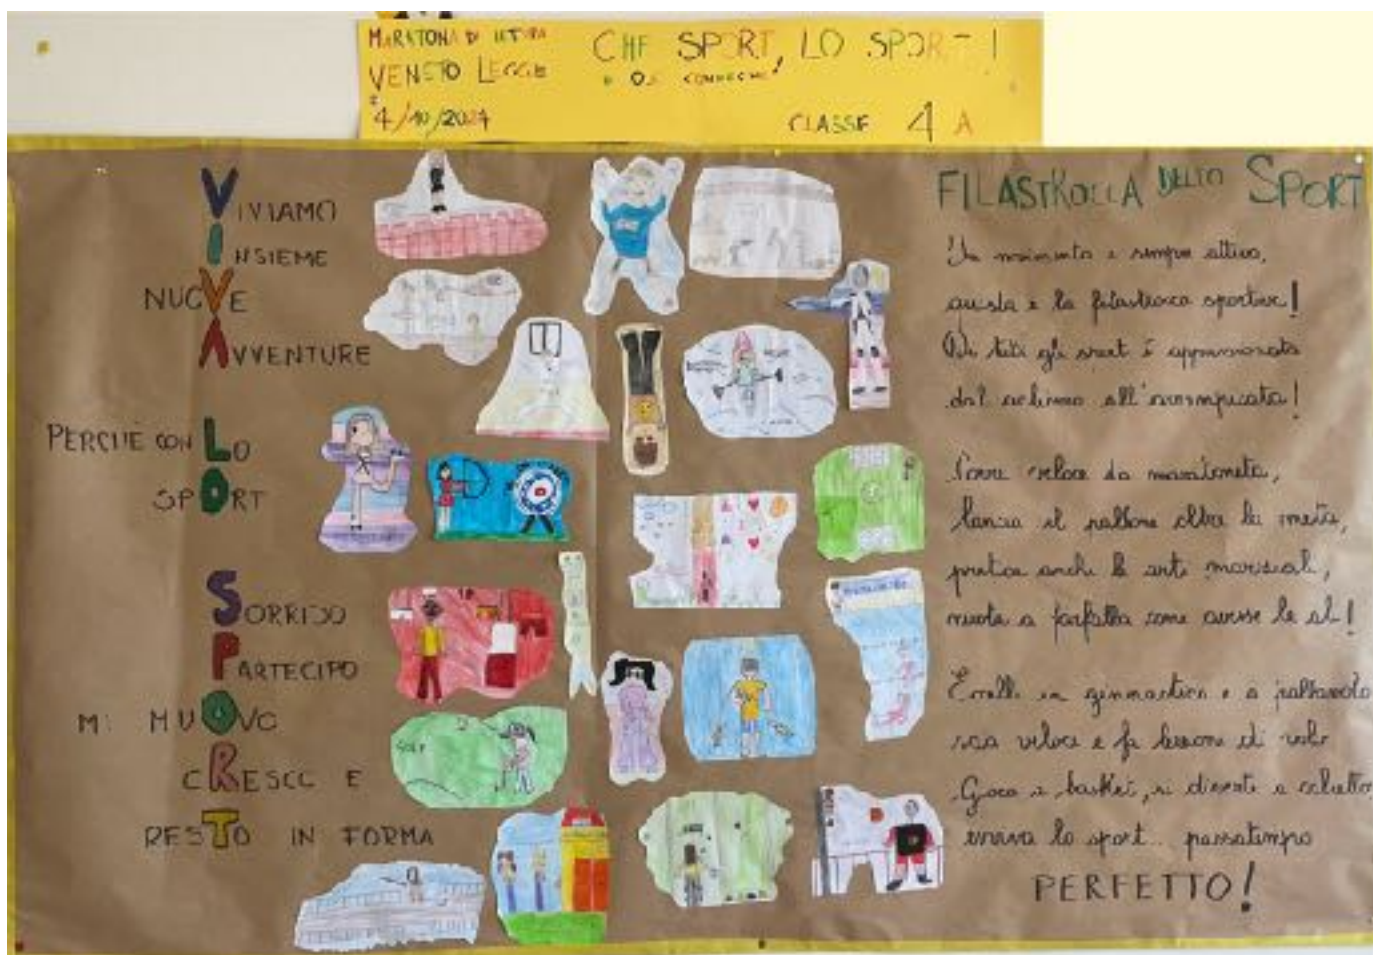 MARATONA DI LETTURA
VENETO LEGGE
4/10/2024
CHE SPORT, LO SPORT!
CLASSE 4 A
VIVIAMO
INSIEME
NUOVE
AVVENTURE
PERCHÈ CON LO
SPORT
SORRIDO
PARTECIPO
MI MUOVO
CRESCO E
RESTO IN FORMA
GOLF
FILASTROCCA DELLO SPORT
In movimento e sempre attivo,
questa è la filastrocca sportiva!
Di tutti gli sport è appassionata
dal ciclismo all'arrampicata!
Corre veloce da maratoneta,
lancia il pallone oltre la meta,
pratica anche le arti marziali,
nuota a farfalla come avesse le ali!
Eccelle in ginnastica e a pallavolo
scia veloce e fa lezione di volo
Gioca a basket, si diverte a calcetto,
evviva lo sport.. passatempo
PERFETTO!